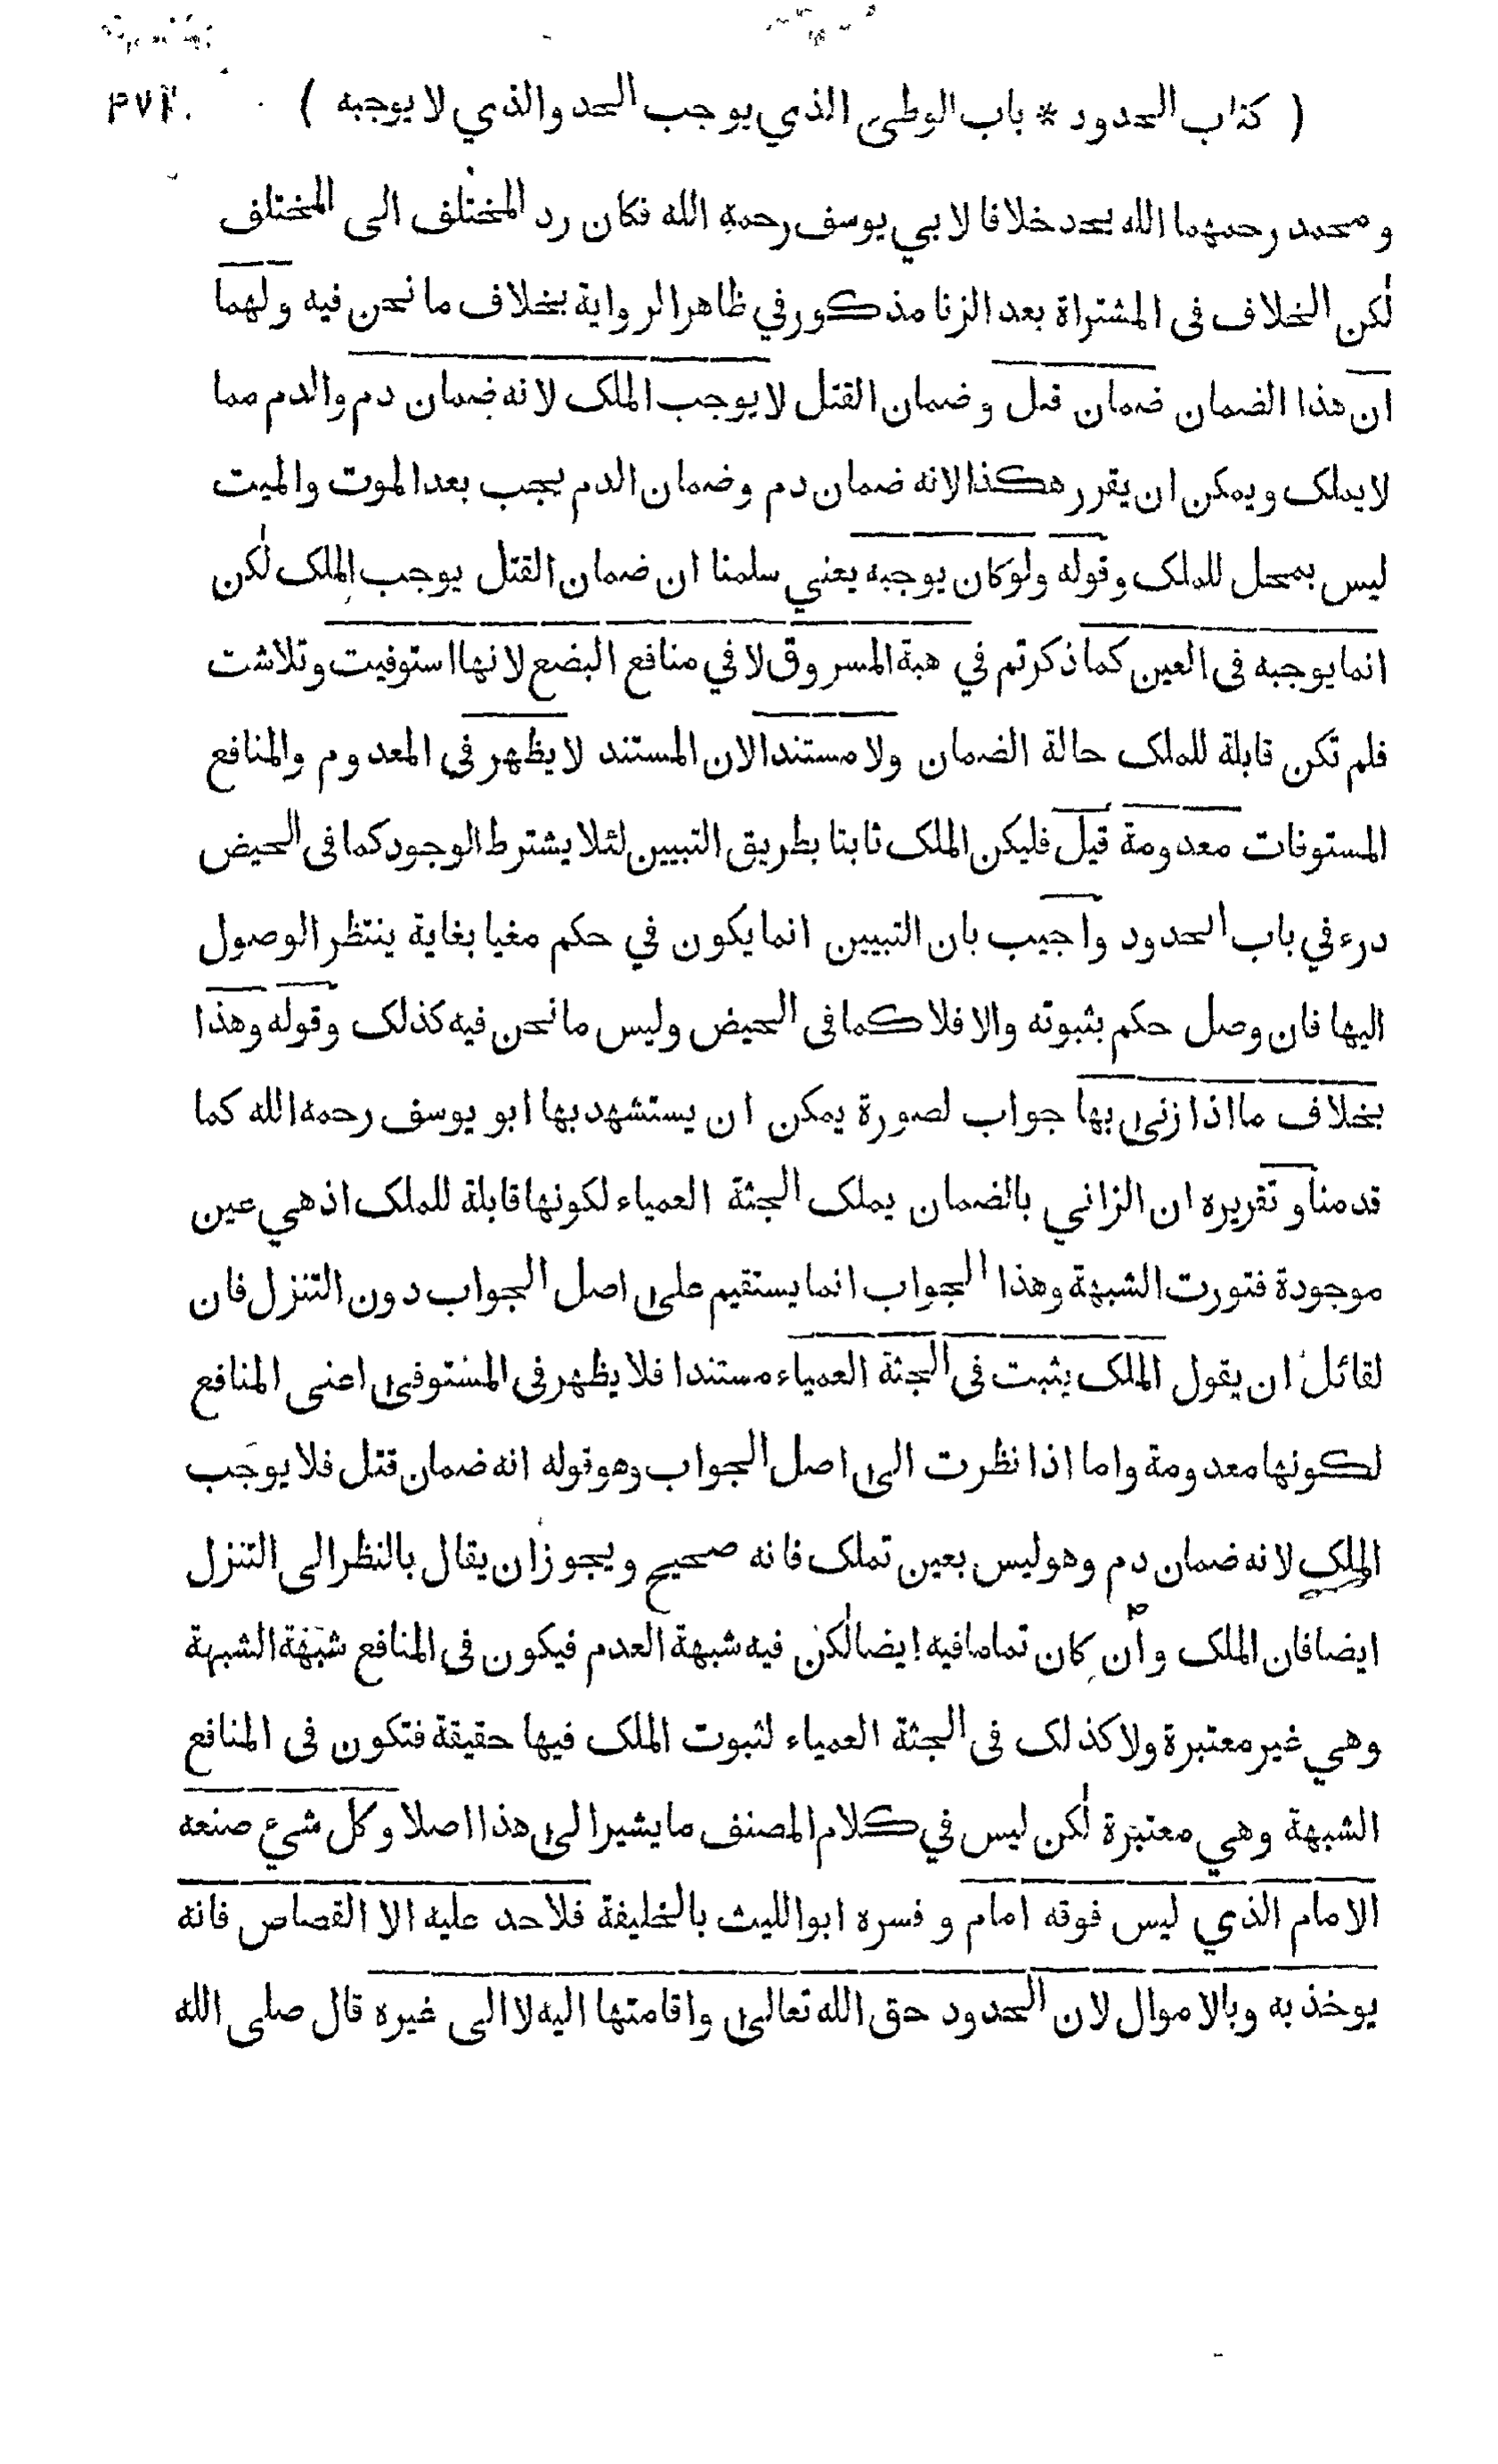 ( كتاب الحدود * باب الوطى الذي يوجب الحد والذي لا يوجبه )
ومحمد رحمهما الله يحد خلافا لابي يوسف رحمة الله فكان رد المختلف الى المختلف
لكن الخلاف فى المشتراة بعد الزنا مذكور في ظاهر الرواية بخلاف ما نحن فيه ولهما
ان هذا الضمان ضمان قتل وضمان القتل لا يوجب الملك لانه ضمان دم والدم مما
لا يملك ويمكن ان يقرر هكذا لانه ضمان دم وضمان الدم يجب بعد الموت والميت
ليس بمحل للملك وقوله ولو كان يوجبه يعني سلمنا ان ضمان القتل يوجب الملك لكن
انما يوجبه فى العين كما ذكرتم في هبة المسروق لا في منافع البضع لانها استوفيت وتلاشت
فلم تكن قابلة للملك حالة الضمان ولا مستندا لان المستند لا يظهر في المعدوم والمنافع
المستوفات معدومة قيل فليكن الملك ثابتا بطريق التبيين لئلا يشترط الوجود كما فى الحيض
درء في باب الحدود واجيب بان التبيين انما يكون في حكم مغيا بغاية ينتظر الوصول
اليها فان وصل حكم بثبوته والا فلا كما فى الحيض وليس ما نحن فيه كذلك وقوله وهذا
بخلاف ما اذا زنى بها جواب لصورة يمكن ان يستشهد بها ابو يوسف رحمه الله كما
قدمنا و تقريره ان الزاني بالضمان يملك الجثة العمياء لكونها قابلة للملك اذ هي عين
موجودة فتورت الشبهة وهذا الجواب انما يستقيم على اصل الجواب دون التنزل فان
لقائل ان يقول الملك يثبت فى الجثة العمياء مستندا فلا يظهر فى المستوفى اعنى المنافع
لكونها معدومة واما اذا نظرت الى اصل الجواب وهو قوله انه ضمان قتل فلا يوجب
الملك لانه ضمان دم وهو ليس بعين تملك فانه صحيح ويجوز ان يقال بالنظر الى التنزل
ايضا فان الملك وان كان تماما فيه ايضا لكن فيه شبهة العدم فيكون فى المنافع شبهة الشبهة
وهي غير معتبرة ولا كذلك فى الجثة العمياء لثبوت الملك فيها حقيقة فتكون فى المنافع
الشبهة وهي معتبرة لكن ليس في كلام المصنف ما يشير الى هذا اصلا وكل شيء صنعه
الامام الذي ليس فوقه امام و فسره ابو الليث بالخليفة فلا حد عليه الا القصاص فانه
يوخذ به وبالاموال لان الحدود حق الله تعالى واقامتها اليه لا الى غيره قال صلى الله